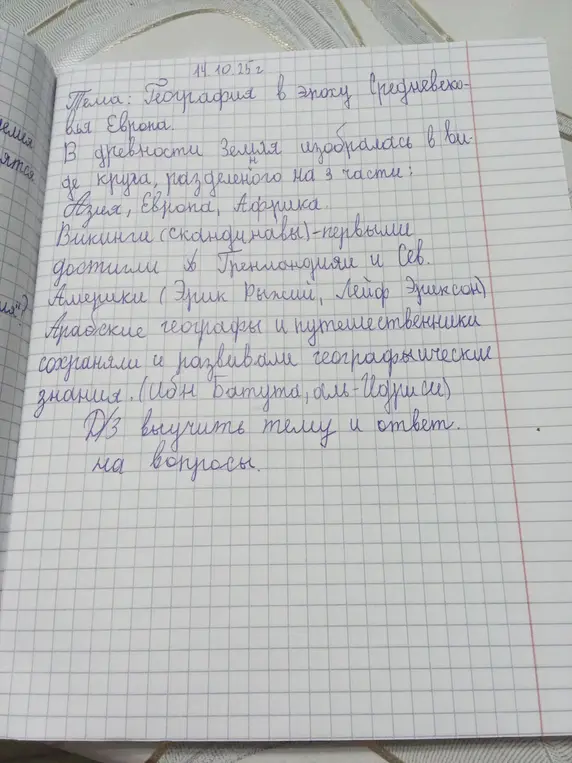 14.10.25г
Тема: География в эпоху Средневеко-
вья Европа.
В древности Земля изобралась в ви-
де круга, разделенного на 3 части:
Азия, Европа, Африка.
Викинги (скандинавы)-первыми
достигли Гренландиям и Сев.
Америки (Эрик Рыжий, Лейф Эриксон)
Арабские географы и путешественники
сохраняли и развивали географические
знания. (Ибн Батута, аль-Идриси)
Д/З выучить тему и ответ.
на вопросы.